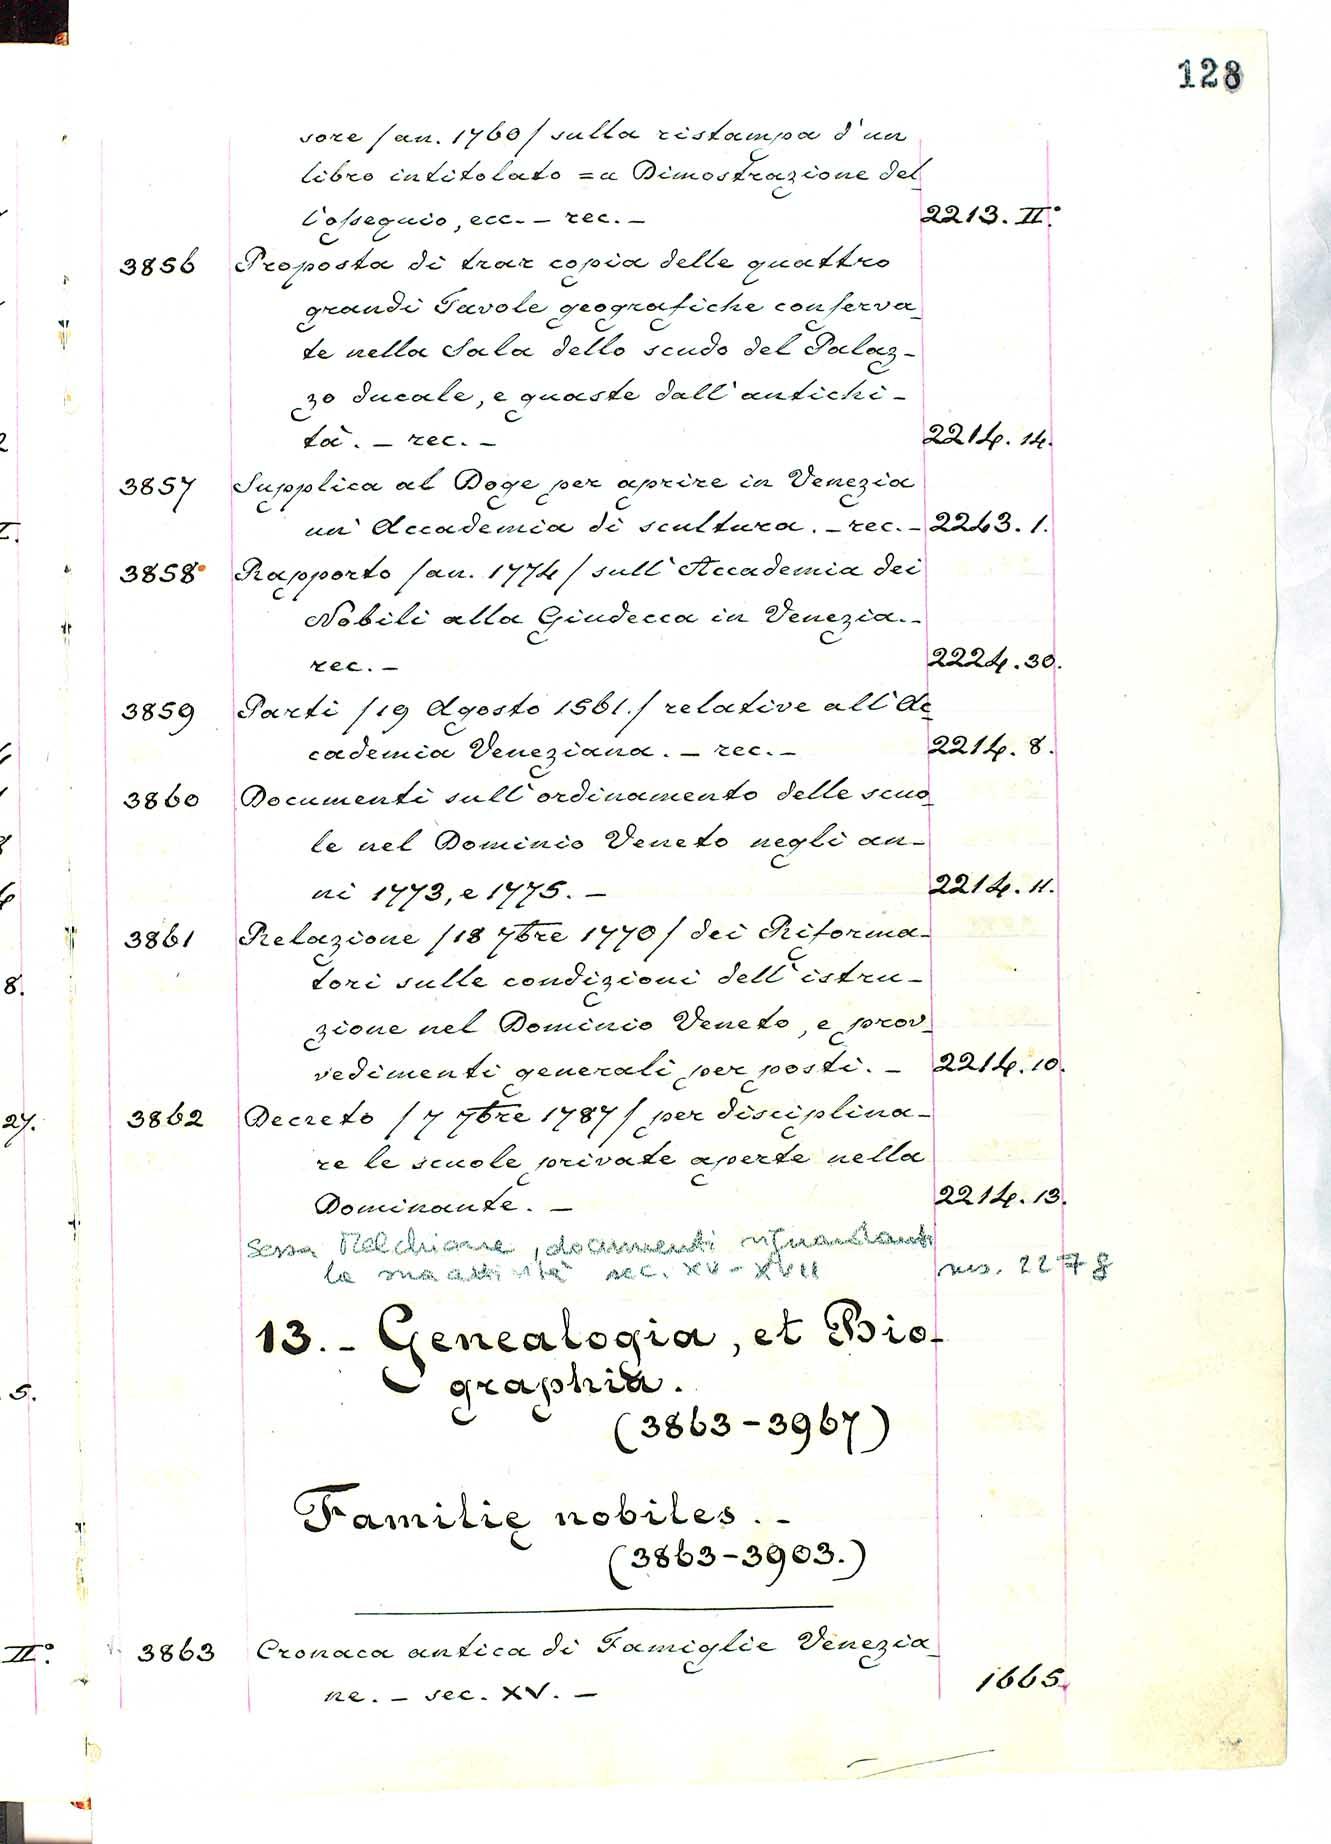 128
sore /an. 1760/ sulla ristampa d'un
libro intitolato = a Dimostrazione del_
l'ossequio, ecc. - rec. - 2213. II.°
3856 Proposta di trar copia delle quattro
grandi Tavole geografiche conserva_
te nella Sala dello scudo del Palaz-
zo ducale, e guaste dall'antichi-
tà. - rec. - 2214. 14.
3857 Supplica al Doge per aprire in Venezia
un' Accademia di scultura. - rec. - 2243. 1.
3858 Rapporto /an. 1774/ sull'Accademia dei
Nobili alla Giudecca in Venezia. -
rec. - 2224. 30.
3859 Parti /19 Agosto 1561./ relative all'Ac_
cademia Veneziana. - rec. - 2214. 8.
3860 Documenti sull'ordinamento delle scuo_
le nel Dominio Veneto negli an-
ni 1773, e 1775. - 2214. 11.
3861 Relazione /18 7bre 1770/ dei Riforma-
tori sulle condizioni dell'istru-
zione nel Dominio Veneto, e prov_
vedimenti generali per posti. - 2214. 10.
3862 Decreto /7 7bre 1787/ per disciplina-
re le scuole private aperte nella
Dominante. - 2214. 13.
Sessa Melchiorre, documenti riguardanti
la sua attività sec. XV - XVII ms. 2278
13. - Genealogia, et Bio-
graphia.
(3863-3967)
Familię nobiles. -
(3863-3903.)
3863 Cronaca antica di Famiglie Venezia_
ne. - sec. XV. - 1665.
2
I.
8.
27.
5.
II.°